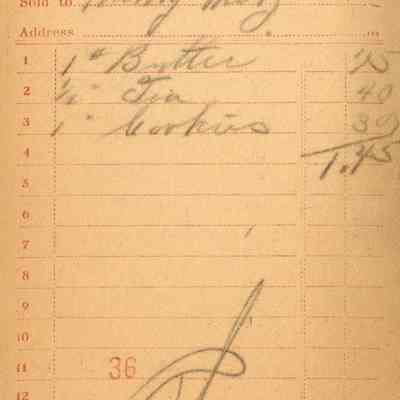 Sold to
Address
1 1# Butter 75
2 ½" Tea 40
3 1" Cookies 30
4 1.45
5
6
7
8
9
10
11 36
12